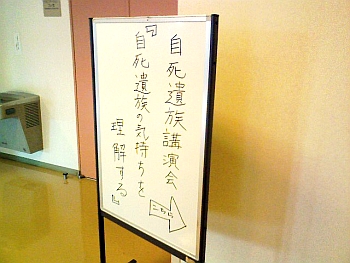 自死遺族講演会
こちら
『自死遺族の気持ちを
理解する』